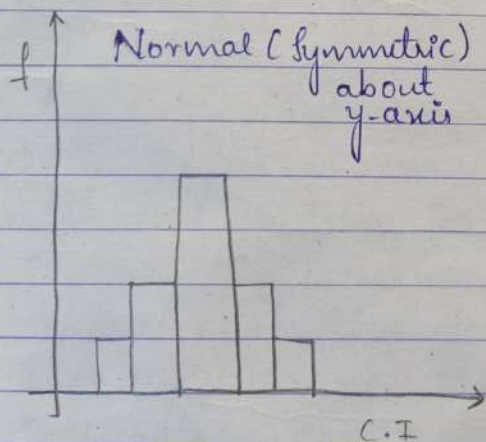 Normal (Symmetric)
about
y-axis
f
C.I